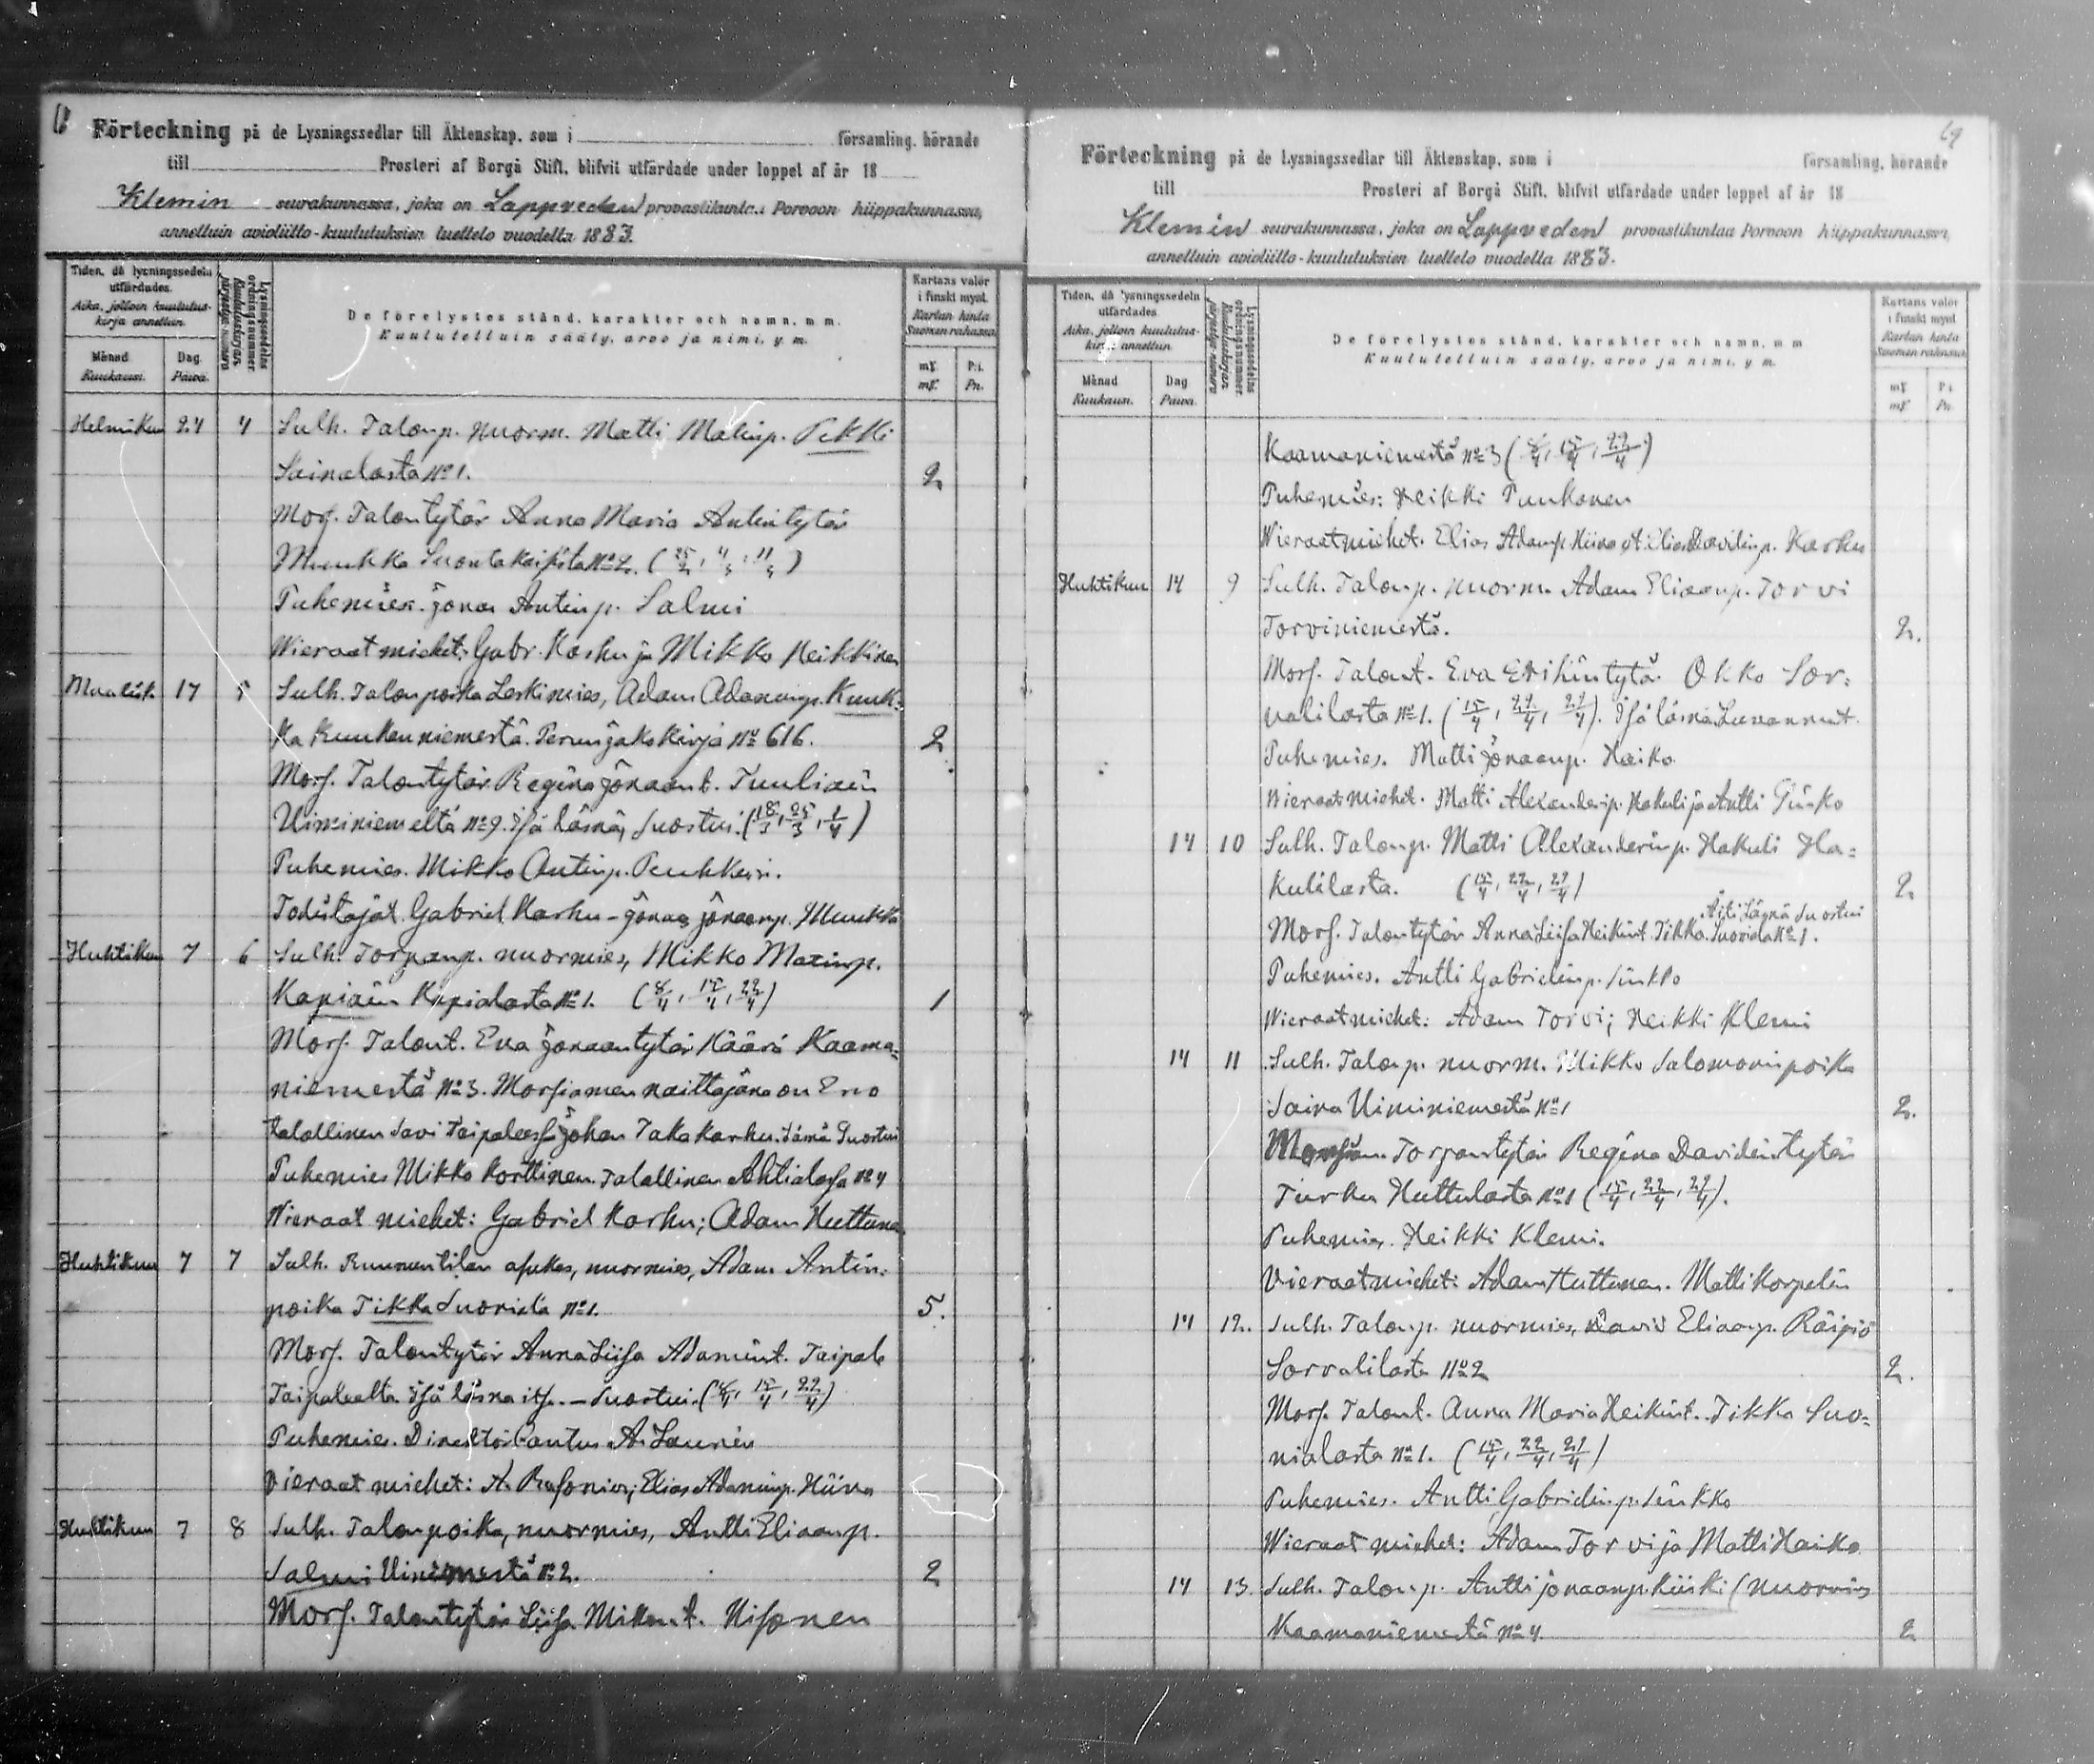 Förteckning på de Lysningssedlar till Äktenskap, som i församling, hörande
till Prosteri af Borgå Stift, blifvit utfärdade under loppet af år 18
Klemin seurakunnassa, joka on Lappveden provastikuntaa Porvoon hiippakunnassa,
annettuin avioliitto-kuulutuksien luettelo vuodella 1883.
Tiden, då lysningssedeln utfärdades.
Aika, jolloin kuulutus-kirja annettiin.
Månad Kuukausi.
Dag. Päivä.
Lysningssedelns ordningsnummer
Kuulutuskirjan järjestys-numero
De förelystes stånd, karakter och namn, m. m.
Kuulutettuin sääty, arvo ja nimi, y. m.
Kartans valör i finskt mynt.
Kartan hinta Suomen rahassa
mf. mf. P:i. Pn.
Helmikuu 24 4 Sulh. Talonp. nuorm. Matti Matinp. Pekki
Sainalasta No 1. 2
Mors. Talontytär Anna Maria Antintytär
Muukka No 2. (25/2, 4/3, 11/3)
Puhemies. Jonas Antinp. Salmi
Wieraat miehet: Gabr. Karhu ja Mikko Heikkinen
Maalisk. 17 5 Sulh. Talonpoika Leskimies, Adam Adaminp. Kuuk-
ka Kuukanniemestä. Perunjakokirja No 616. 2
Mors. Talontytär Regina Jonaant. Tuuliain
Uiminiemeltä No 9. Isä läsnä, suostui. (18/3, 25/3, 1/4)
Puhemies. Mikko Antinp.
Todistajat. Gabriel Karhu - Jonas Jonaanp. Muukka
Huhtikuu 7 6 Sulh. Torpanp. nuormies, Mikko Matinp.
Kapiain Kapialasta No 1. (8/4, 15/4, 22/4) 1
Mors. Talont. Eva Jonaantytär Kääriä Kaama-
niemestä No 3. Morsiamen naittajana on Eno
talallinen Savitaipaleessa Johan Takakarhu. Läsnä Suostui
Puhemies Mikko Korttinen. Talallinen Ahtialassa No 4
Wieraat miehet: Gabriel Karhu; Adam Huttunen
Huhtikuu 7 7 Sulh. Ruununtilan asukas, nuormies, Adam Antin-
poika Tikka Suorinla No 1. 5.
Mors. Talontytär Anna Liisa Adamint. Taipale
Taipaleelta. Isä läsnä its. - Suostui. (8/4, 15/4, 22/4)
Puhemies. Direktör Cantus A. Laurén
Vieraat miehet: Elias Adaminp. Hiiva
Huhtikuu 7 8 Sulh. Talonpoika, nuormies, Antti Eliaanp.
Salmi No 2. 2
Mors. Talontytär Liisa Mikont. Nisonen
69
Förteckning på de Lysningssedlar till Äktenskap, som i församling, hörande
till Prosteri af Borgå Stift, blifvit utfärdade under loppet af år 18
Klemin seurakunnassa, joka on Lappveden provastikuntaa Porvoon hiippakunnassa,
annettuin avioliitto-kuulutuksien luettelo vuodella 1883.
Tiden, då lysningssedeln utfärdades
Aika, jolloin kuulutus-kirja annettiin.
Månad Kuukausi.
Dag Päivä.
Lysningssedelns ordningsnummer
Kuulutuskirjan järjestys-numero
De förelystes stånd, karakter och namn, m m
Kuulutettuin sääty, arvo ja nimi, y m.
Kartans valör i finskt mynt
Kartan hinta Suomen rahassa
mf mf P i Pn.
Kaamaniemestä No 3 (8/4, 15/4, 22/4)
Puhemies: Heikki Puukonen
Wieraatmiehet. Elias Adamp. Hiiva Elias Davidinp. Karhu
Huhtikuu 14 9 Sulh. Talonp. nuorm. Adam Eliaanp. Torvi
Torviniemestä. 2.
Mors. Talont. Eva Okko Sor-
valilasta No 1. (15/4, 22/4, 29/4). Isä läsnä
Puhemies. Matti Jonaanp. Haiko
Wieraatmiehet. Matti Alexanderip. Hakuli ja Antti
14 10 Sulh. Talonp. Matti Alexanderinp. Hakuli Ha-
kulilasta. (15/4, 22/4, 29/4) 2
Äiti Läsnä Suostui
Mors. Talontytär Anna Liisa Heikint. Tikka No 1.
Puhemies. Antti Gabrielinp. Sinkko
Wieraatmiehet: Adam Torvi; Heikki Klemi
14 11 Sulh. Talonp. nuorm. Mikko Salomoninpoika
Saira Uiminiemestä No 1 2.
Torpantytär Regina Davidintytär
Turku Huttulasta No 1 (15/4, 22/4, 29/4).
Puhemies. Heikki Klemi.
Vieraatmiehet: Adam Huttunen. Matti Korpelin
14 12. Sulh. Talonp. nuormies, David Eliaanp. Räipiö
Sorvalilasta No 2 2.
Mors. Talont. Anna Maria Heikint. Tikka Suo-
nialasta No 1. (15/4, 22/4, 29/4)
Puhemies. Antti Gabrielinp. Sinkko
Wieraat miehet: Adam Torvi ja Matti Haiko
14 13. Sulh. Talonp. Antti Jonaanp. Kiiski (nuormies
Kaamaniemestä No 4. 2